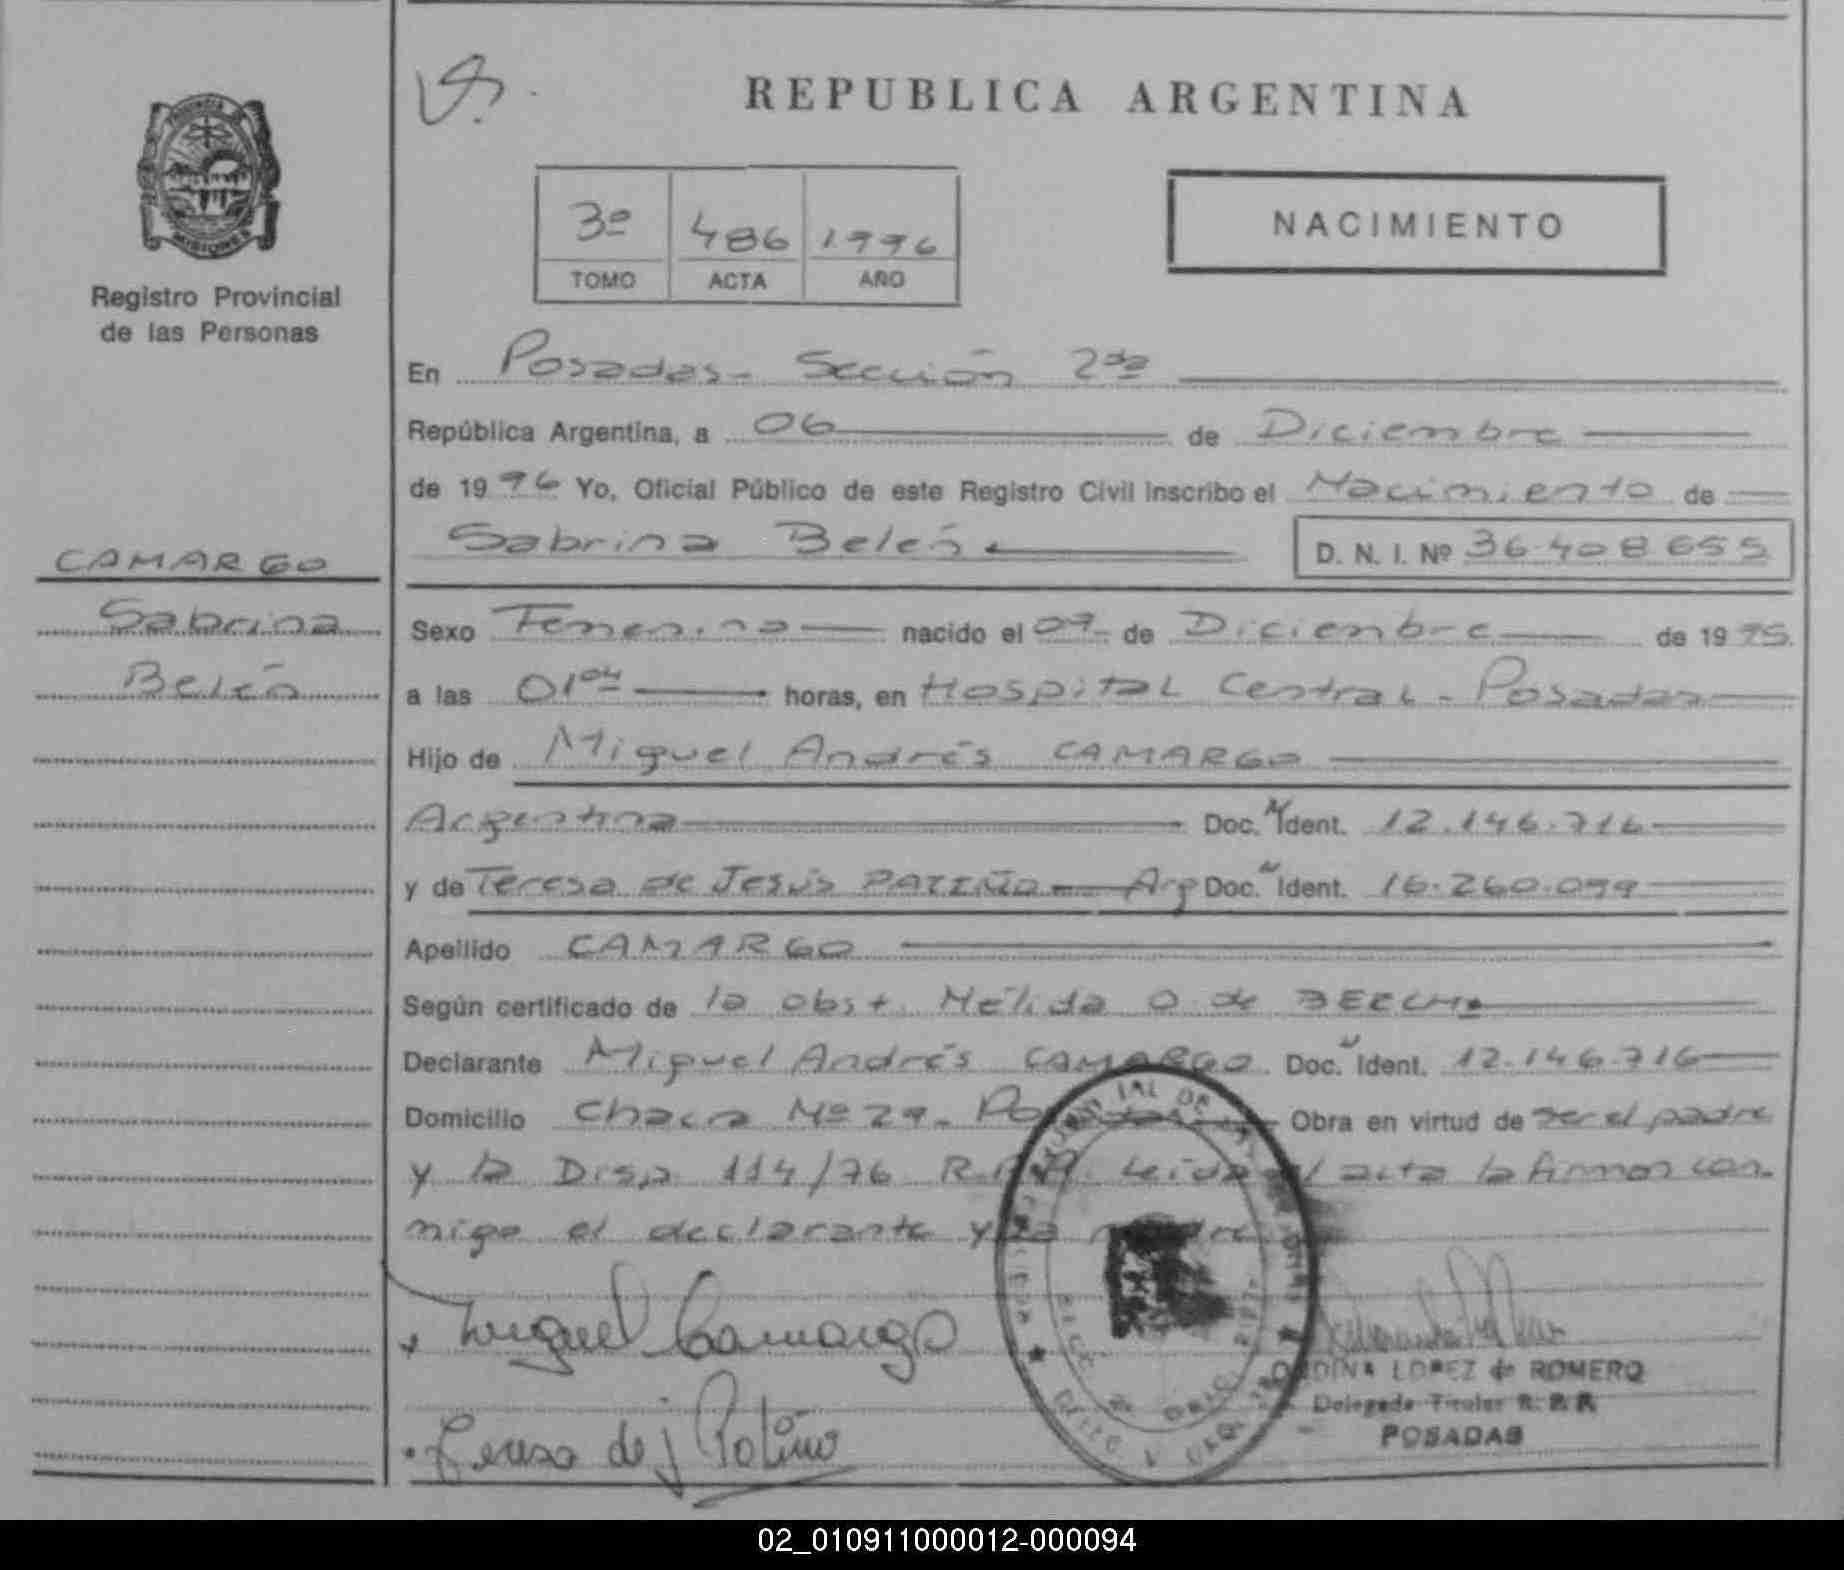 REPUBLICA ARGENTINA
PROVINCIA DE
MISIONES
Registro Provincial
de las Personas
3º 486 1996
TOMO ACTA AÑO
NACIMIENTO
En Posadas - Sección 2da
República Argentina, a 06 de Diciembre
de 1996 Yo, Oficial Público de este Registro Civil inscribo el Nacimiento de
Sabrina Belén D. N. I. Nº 36.408.655
CAMARGO
Sabrina
Belén
Sexo Femenino nacido el 07 de Diciembre de 1995
a las 01 horas, en Hospital Central - Posadas
Hijo de Miguel Andrés CAMARGO
Argentina Doc. Ident. 12.146.716
y de Teresa de Jesús PATIÑO Arg Doc. Ident. 16.260.099
Apellido CAMARGO
Según certificado de la obst. Nélida O. de
Declarante Miguel Andrés CAMARGO Doc. Ident. 12.146.716
Domicilio Chacra Nº 29 - Obra en virtud de ser el padre
y la Disp 114/76 R.P.P. Leida el acta la firman con-
migo el declarante y la madre
Miguel Camargo
Teresa de J Patiño
ONDINA LOPEZ de ROMERO
Delegada Titular R. P. P.
POSADAS
02_010911000012-000094